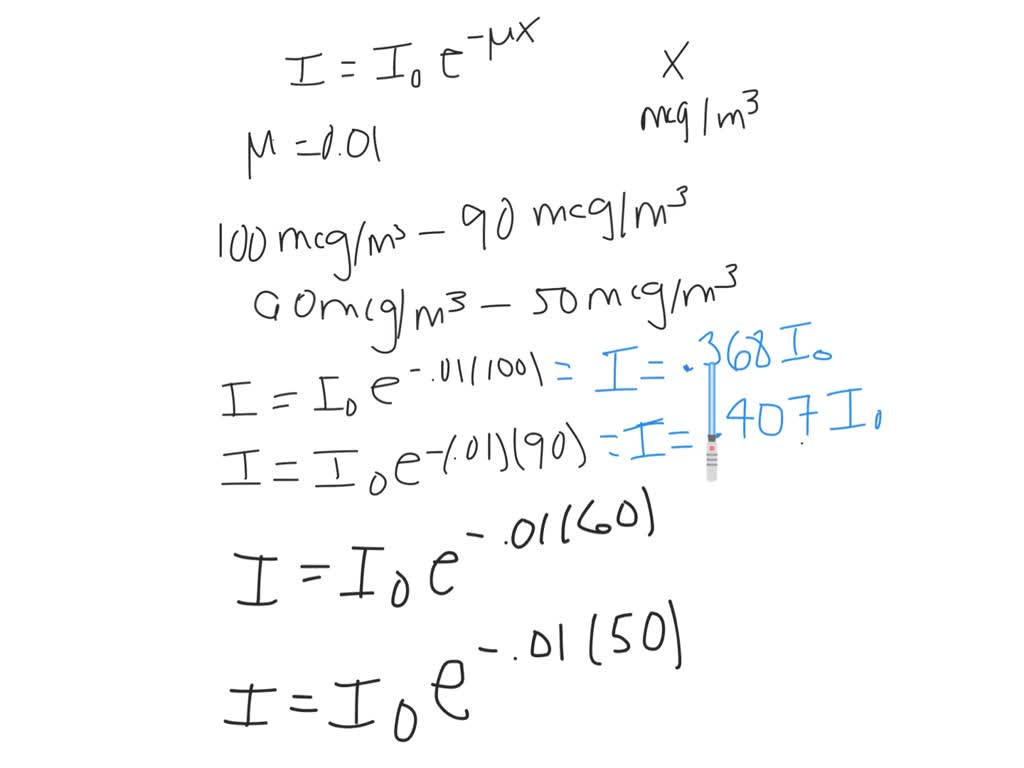 I = I₀ e^-μx
x
mcg/m³
μ = 0.01
100 mcg/m³ - 90 mcg/m³
60 mcg/m³ - 50 mcg/m³
I = I₀ e^-.01(100) = I = .368 I₀
I = I₀ e^-(.01)(90) = I = .407 I₀
I = I₀ e^-.01(60)
I = I₀ e^-.01(50)